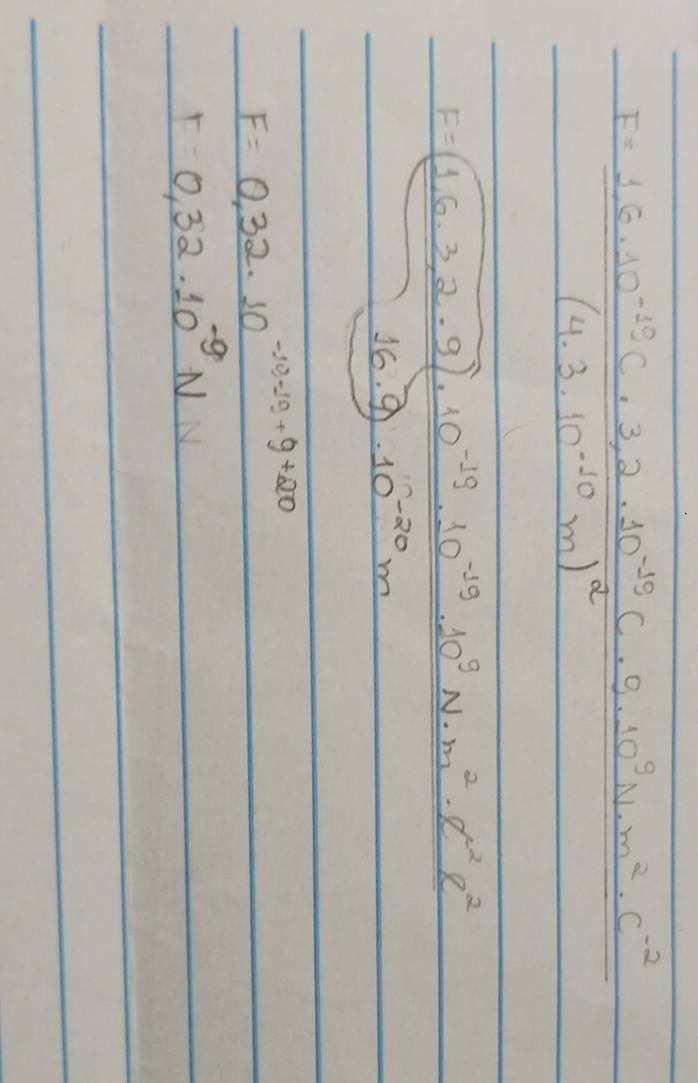 F = 1,6 . 10⁻¹⁹ C . 3,2 . 10⁻¹⁹ C . 9 . 10⁹ N . m² . C⁻²
(4.3 . 10⁻¹⁰ m)²
F = (1,6 . 3,2 . 9) . 10⁻¹⁹ . 10⁻¹⁹ . 10⁹ N . m² . C⁻² C²
16 . 9 . 10⁻²⁰ m
F = 0,32 . 10⁻¹⁹⁻¹⁹⁺⁹⁺²⁰
F = 0,32 . 10⁻⁹ N N